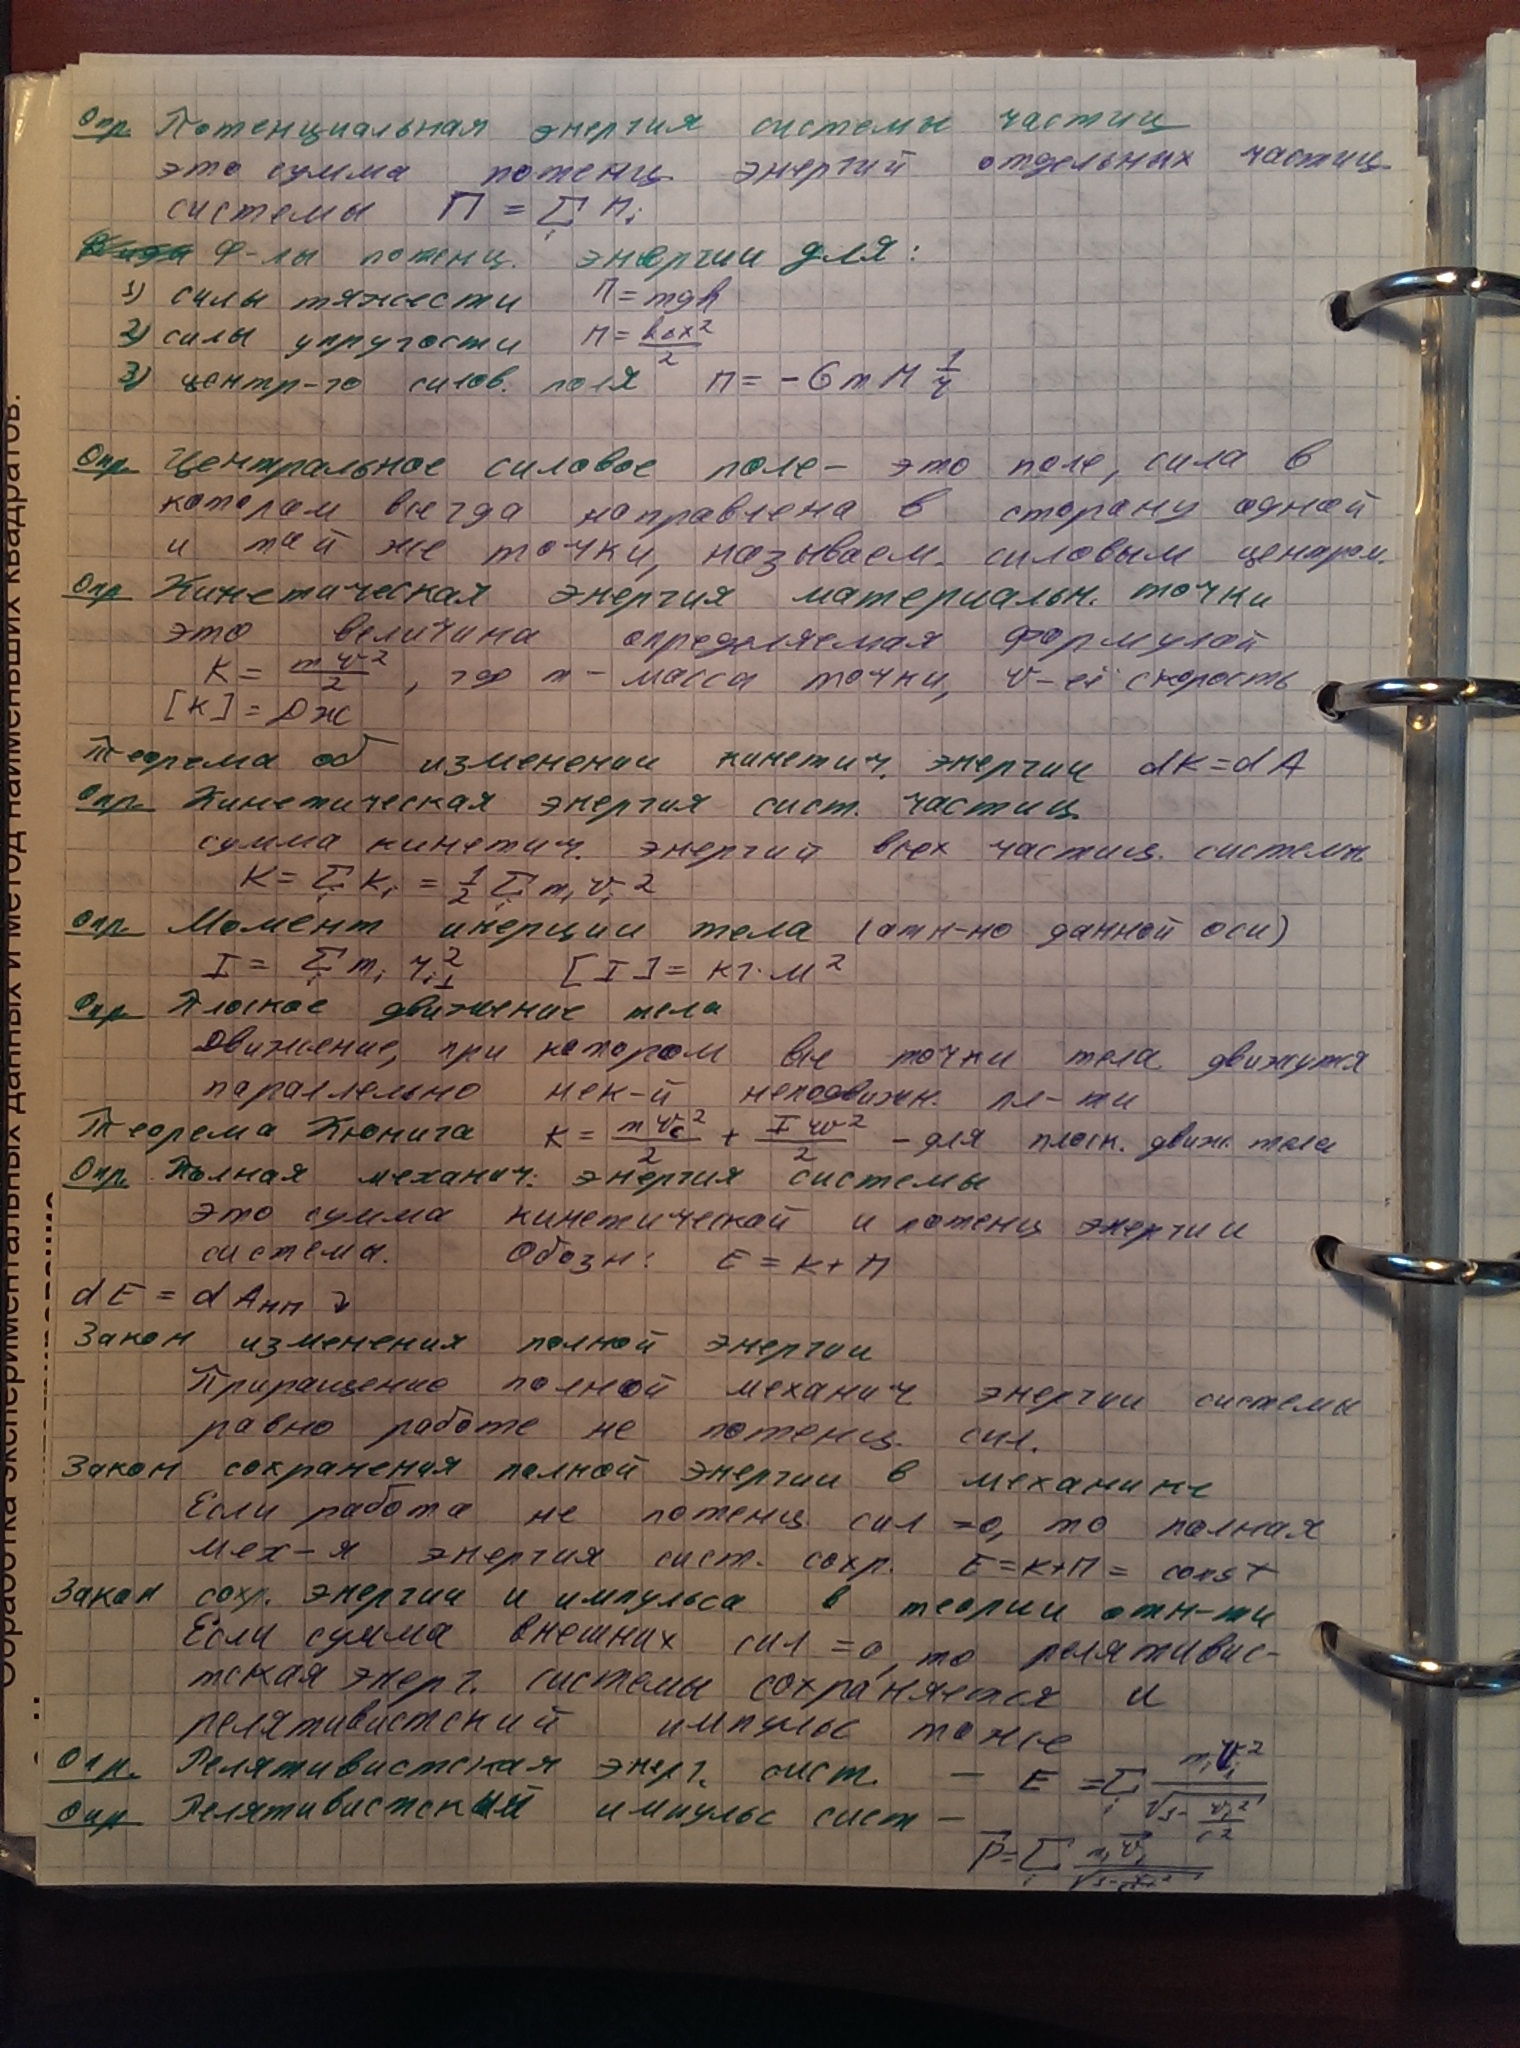 Опр Потенциальная энергия системы частиц
это сумма потенц. энергий отдельных частиц
системы П = Σ Пᵢ
Ф-лы потенц. энергии для:
1) силы тяжести П = mgh
2) силы упругости П = kΔx²/2
3) центр-го силов. поля П = -GmM 1/r
Опр Центральное силовое поле - это поле, сила в
котором всегда направлена в сторону одной
и той же точки, называем. силовым центром.
Опр Кинетическая энергия материальн. точки
это величина определяемая формулой
K = mv²/2, где m - масса точки, v - её скорость
[K] = Дж
Теорема об изменении кинетич. энергии dK = dA
Опр Кинетическая энергия сист. частиц
сумма кинетич. энергий всех частиц системы
K = Σ Kᵢ = 1/2 Σ mᵢ vᵢ²
Опр Момент инерции тела (отн-но данной оси)
I = Σ mᵢ rᵢ⊥² [I] = кг·м²
Опр Плоское движение тела
Движение, при котором все точки тела движутся
параллельно нек-й неподвижн. пл-ти
Теорема Кёнига K = mv_c²/2 + Iw²/2 - для плоск. движ. тела
Опр. Полная механич. энергия системы
это сумма кинетической и потенц энергии
системы. Обозн: E = K + П
dE = dAнп ↴
Закон изменения полной энергии
Приращение полной механич энергии системы
равно работе не потенц. сил.
Закон сохранения полной энергии в механике
Если работа не потенц сил = 0, то полная
мех-я энергия сист. сохр. E = K + П = const
Закон сохр. энергии и импульса в теории отн-ти
Если сумма внешних сил = 0, то релятивис-
тская энерг. системы сохраняется и
релятивистский импульс тоже
Опр. Релятивистская энерг. сист. - E = Σ
Опр Релятивистский импульс сист -